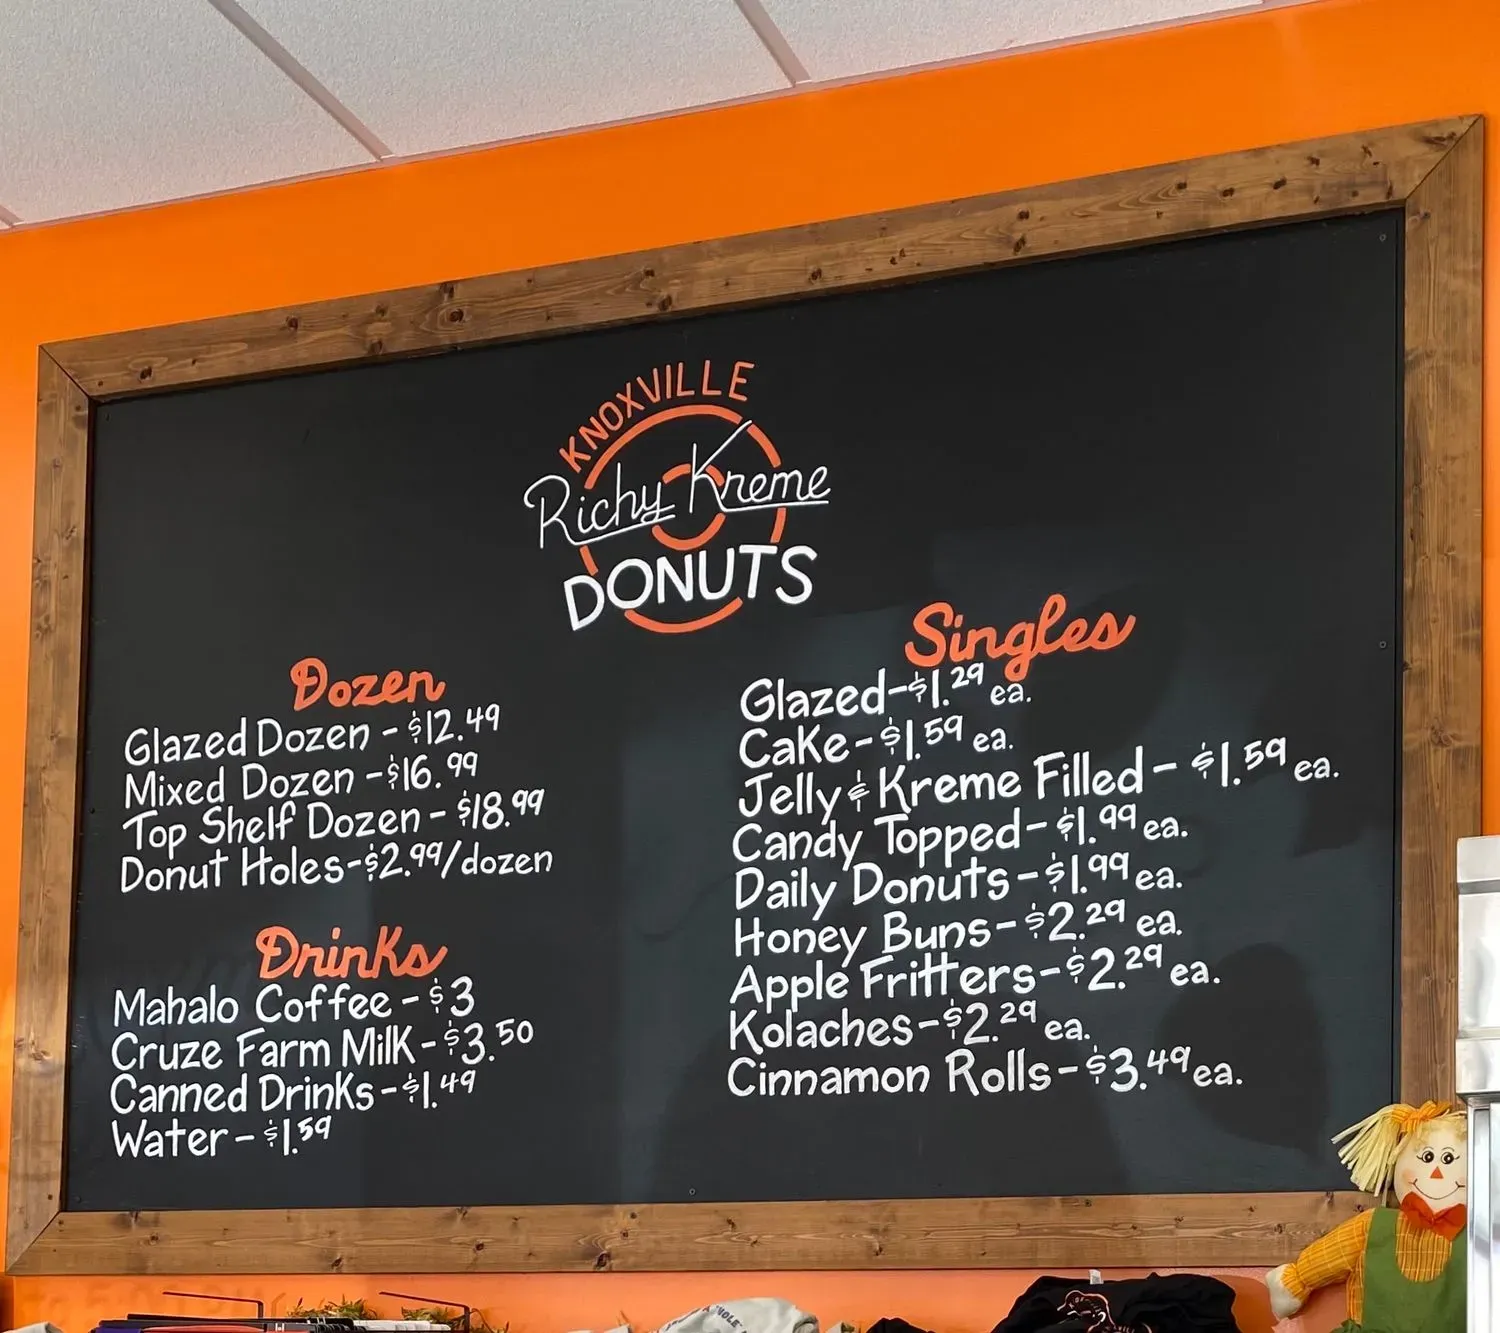 KNOXVILLE
Richy Kreme
DONUTS
Dozen
Glazed Dozen - $12.49
Mixed Dozen - $16.99
Top Shelf Dozen - $18.99
Donut Holes - $2.99/dozen
Drinks
Mahalo Coffee - $3
Cruze Farm Milk - $3.50
Canned Drinks - $1.49
Water - $1.59
Singles
Glazed - $1.29 ea.
Cake - $1.59 ea.
Jelly & Kreme Filled - $1.59 ea.
Candy Topped - $1.99 ea.
Daily Donuts - $1.99 ea.
Honey Buns - $2.29 ea.
Apple Fritters - $2.29 ea.
Kolaches - $2.29 ea.
Cinnamon Rolls - $3.49 ea.